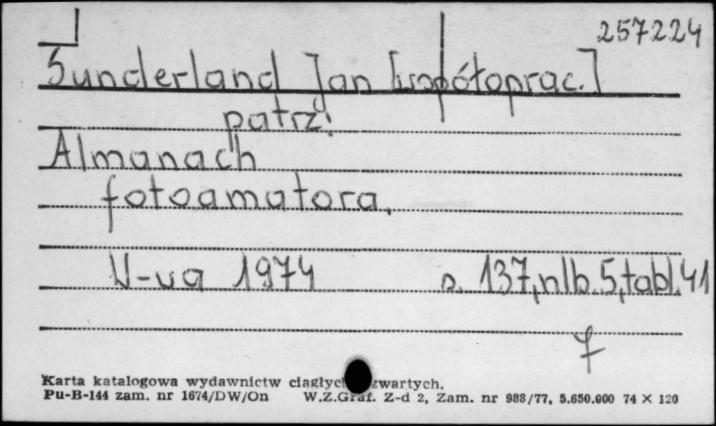 257224
Sunderland Jan [współoprac.]
patrz:
Almanach
fotoamatora.
W-wa 1974 s. 137, nlb. 5, tabl. 41
Karta katalogowa wydawnictw ciągłych zwartych.
Pu-B-144 zam. nr 1674/DW/On W.Z.Graf. Z-d 2, Zam. nr 988/77, 5.650.000 74 × 120